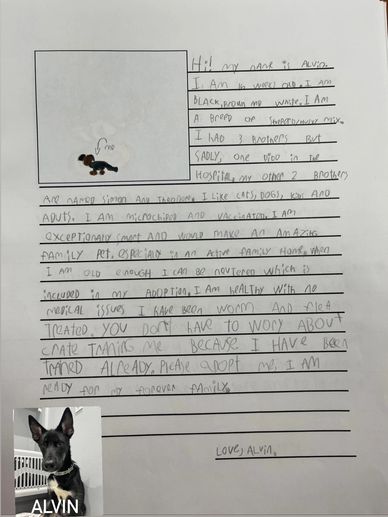 Hi! my name is ALVIN.
I Am 16 weeks old. I Am
BLACK, Brown and white. I Am
A Breed of mix.
I HAD 3 Brothers But
SADLY, one Died in the
Hospital. my other 2 Brothers
me
Are named Simon And Theodore. I Like CATS, DOGS, KIDS AND
ADULTS. I AM microchiped AND VACCINATED. I AM
exceptionaly smart AND would make An AmAzing
family Pet, especialy in An Active family Home. When
I am old enough I can Be neutered which is
included in my ADoption. I Am HeALTHY with no
medical issues I have been worm And flea
Treated. You Don't HAVE to WORY ABOUT
CRATE TRAINING me Because I HAVE Been
TRAINED ALREADY. Please adopt me, I AM
ready for my forever family.
Love, ALVIN.
ALVIN